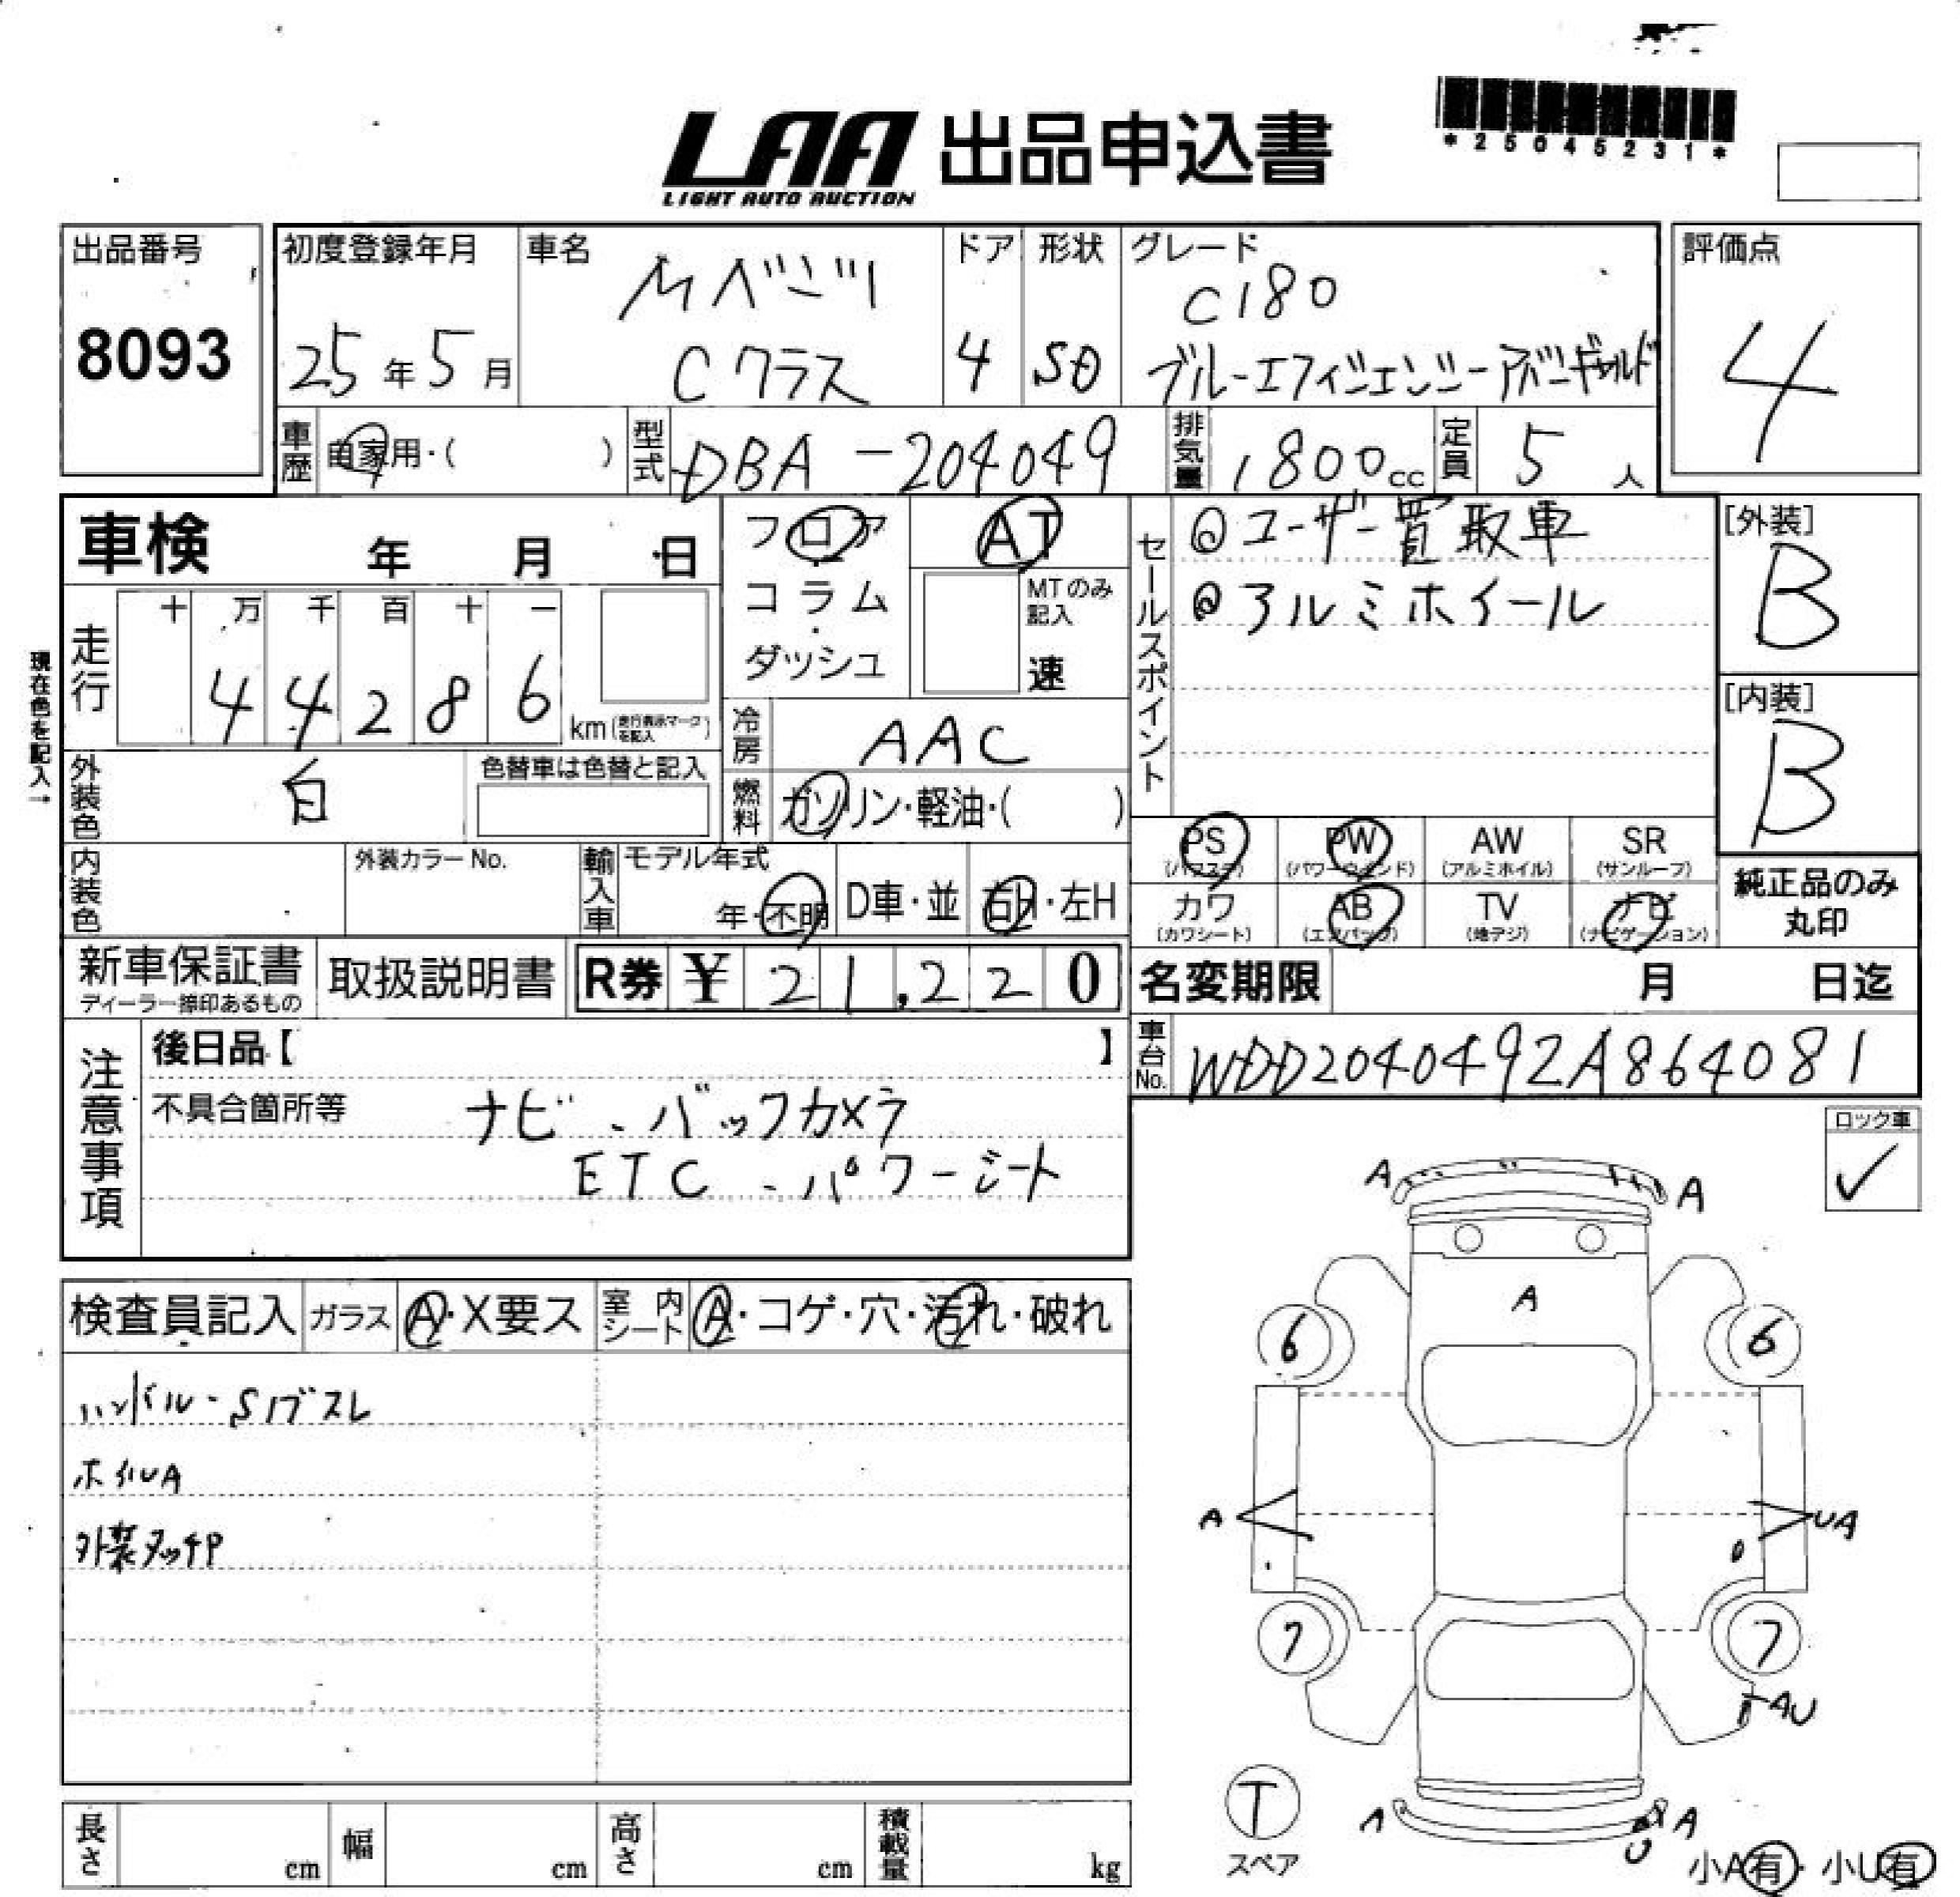 LAA 出品申込書
LIGHT AUTO AUCTION
*25045231*
出品番号
8093
初度登録年月
25年5月
車名
Mベンツ
Cクラス
ドア
4
形状
SD
グレード
C180
ブルーエフィシェンシーアバンギャルド
評価点
4
車歴
自家用・( )
型式
DBA-204049
排気量
1800cc
定員
5人
車検 年 月 日
走行
十 万 千 百 十 一
4 4 2 8 6
km(走行表示マークを記入)
現在色を記入→
外装色
白
色替車は色替と記入
内装色
外装カラーNo.
フロア
コラム
・
ダッシュ
AT
MTのみ
記入
速
冷房
AAC
燃料
ガソリン・軽油・( )
輸入車
モデル年式
年・不明
D車・並
右H・左H
セールスポイント
@ユーザー買取車
@アルミホイール
[外装]
B
[内装]
B
PS
(パワステ)
PW
(パワーウインド)
AW
(アルミホイル)
SR
(サンルーフ)
カワ
(カワシート)
AB
(エアバッグ)
TV
(地デジ)
ナビ
(ナビゲーション)
純正品のみ
丸印
新車保証書
ディーラー捺印あるもの
取扱説明書
R券 ¥21,220
名変期限 月 日迄
車台No.
WDD2040492A864081
注意事項
後日品【 】
不具合箇所等
ナビ、バックカメラ
ETC、パワーシート
ロック車
✓
検査員記入
ガラス
A・X要ス
室内シート
A・コゲ・穴・汚れ・破れ
ハンドル・Sノブスレ
ホイルA
外装タッチP
A
A
A
6
6
A
UA
7
7
AU
T
スペア
A
A
U
小A有・小U有
長さ
cm
幅
cm
高さ
cm
積載量
kg